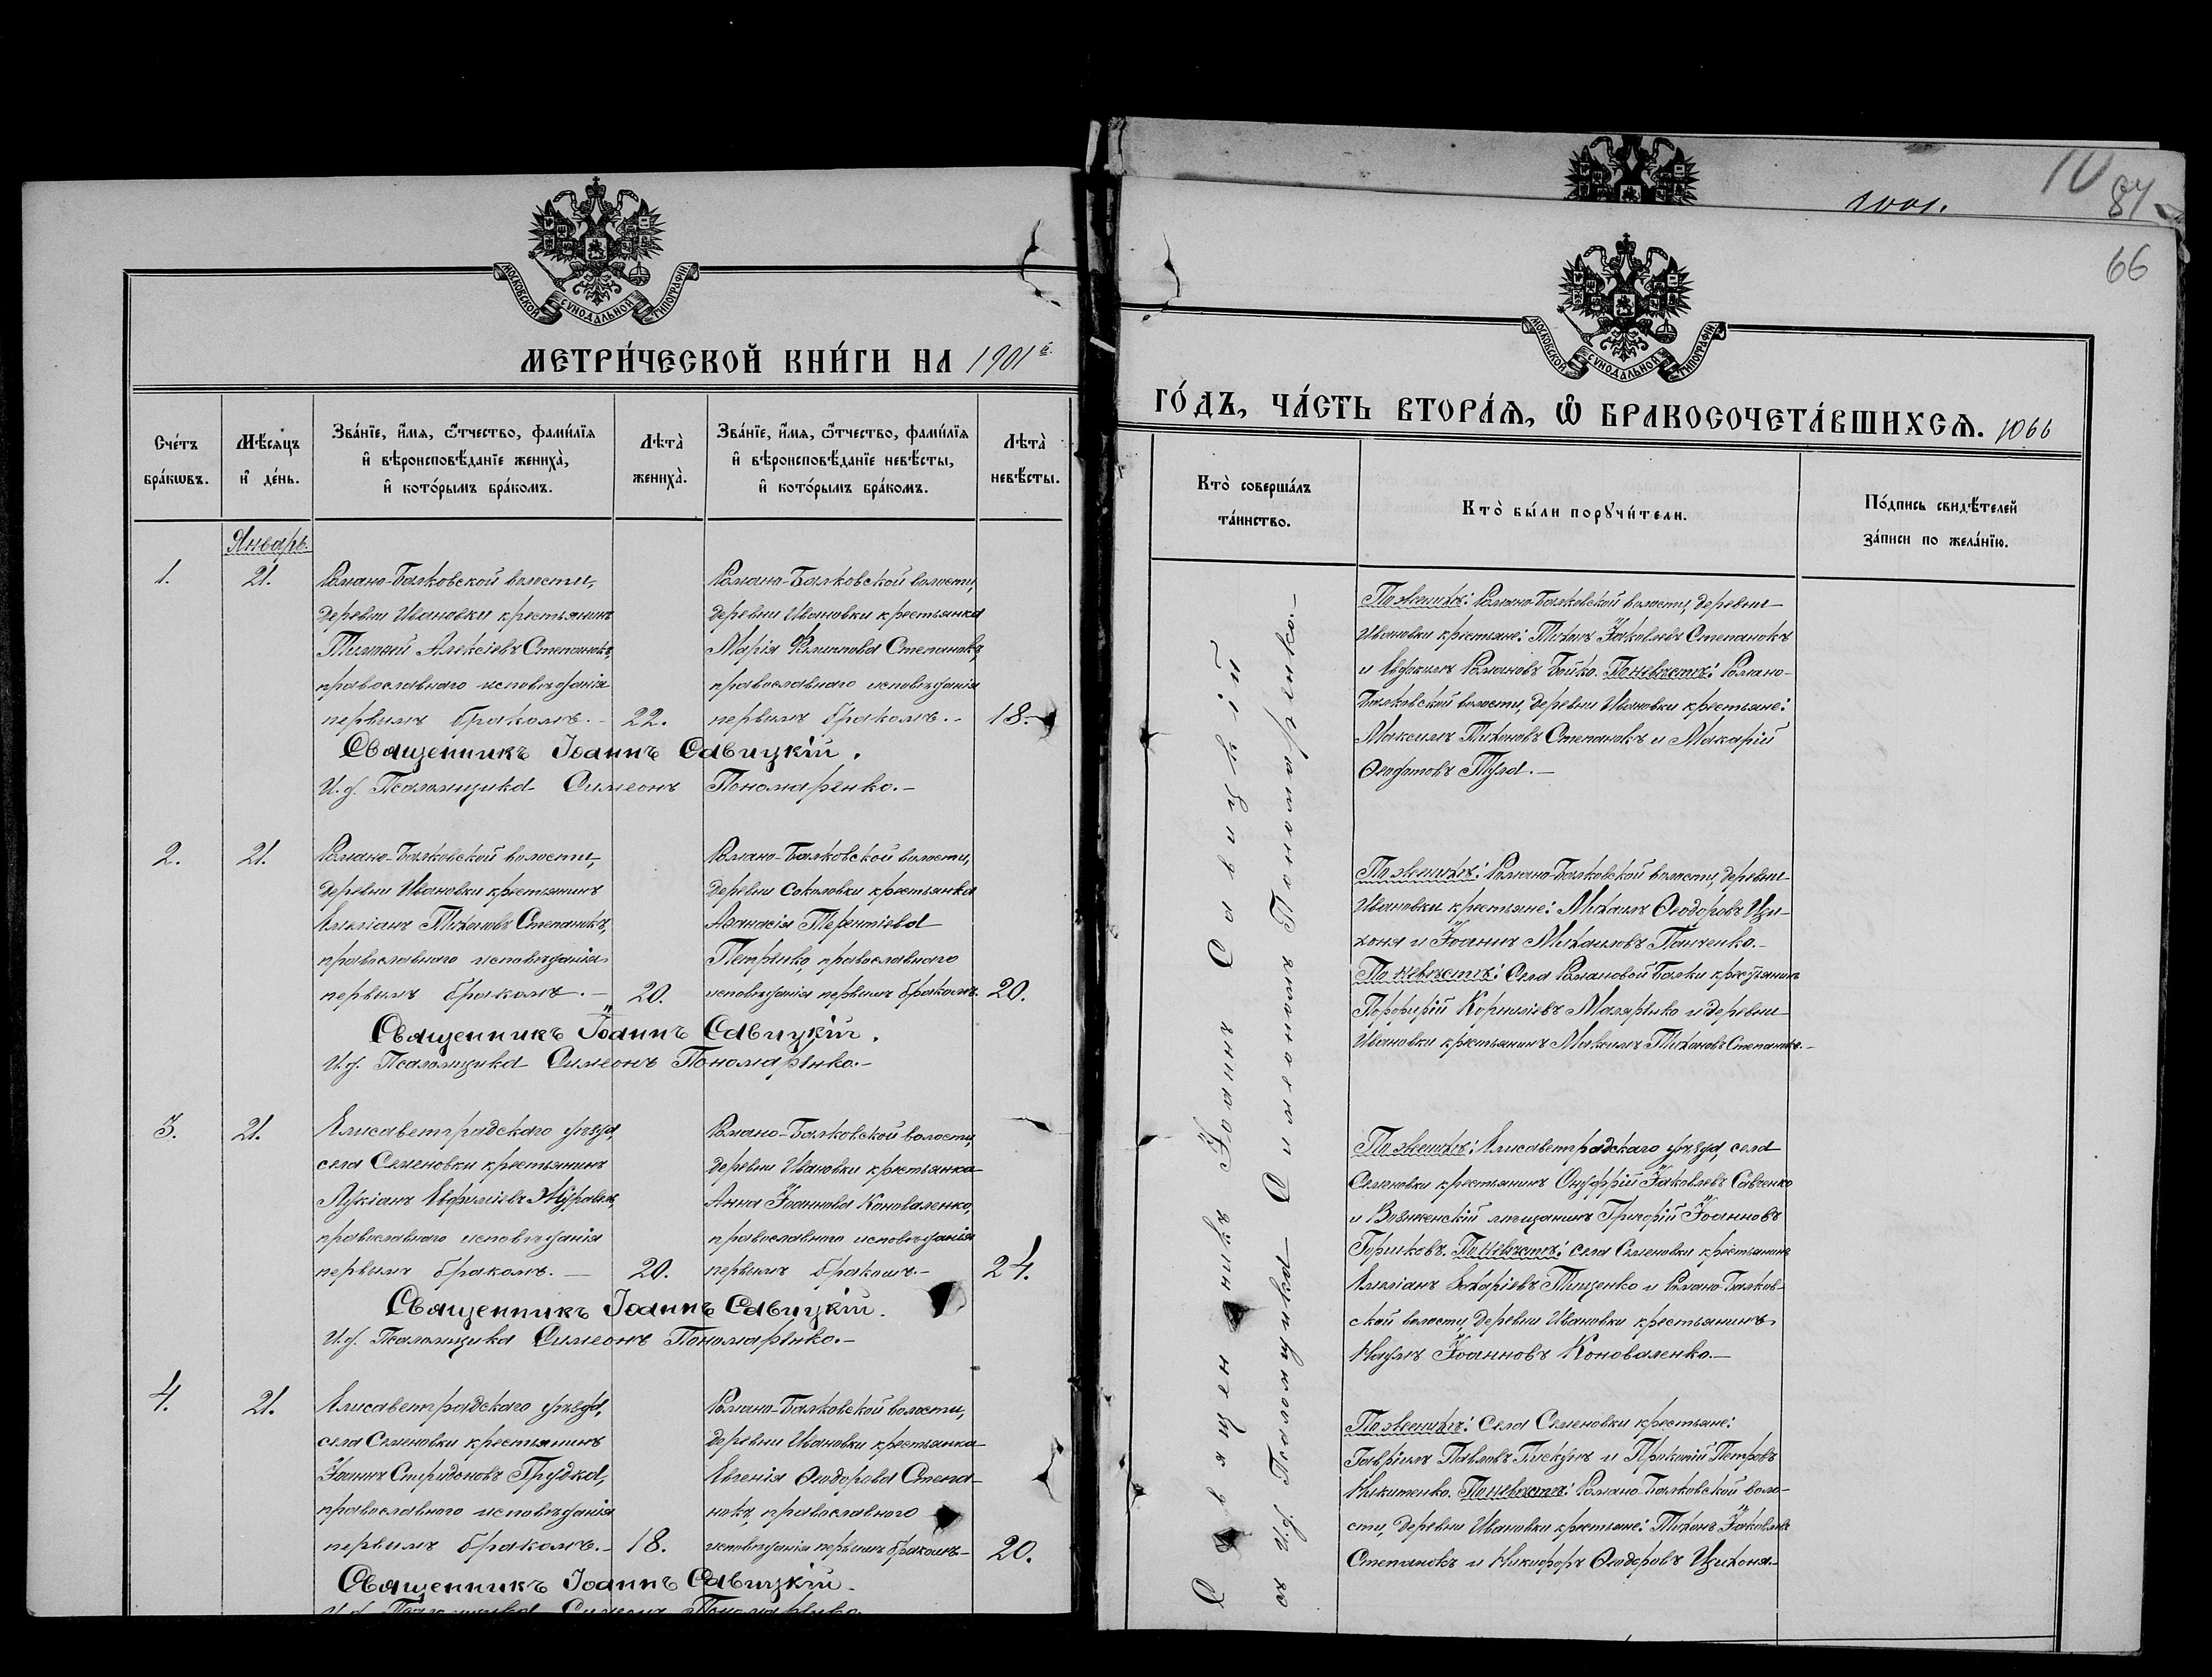 МОСКОВСКОЙ СѴНОДАЛЬНОЙ ТИПОГРАФІИ
МЕТРИ́ЧЕСКОЙ КНИ́ГИ НА 1901й
Сче́тъ бра́кѡвъ.
Мѣ́сяцъ и де́нь.
Зва́нїе, и́мя, ѻ҆́тчество, фами́лїя и҆ вѣроисповѣ́данїе жениха̀, и҆ кото́рымъ бра́комъ.
Лѣта̀ жениха̀.
Зва́нїе, и́мя, ѻ҆́тчество, фами́лїя и҆ вѣроисповѣ́данїе невѣ́сты, и҆ кото́рымъ бра́комъ.
Лѣта̀ невѣ́сты.
Январь.
1.
21.
Романо-Балковской волости,
деревни Ивановки крестьянинъ
Тимофей Алексіевъ Степанокъ,
православнаго исповѣданія
первымъ бракомъ.-
22.
Романо-Балковской волости,
деревни Ивановки крестьянка
Марія Филиппова Степанокъ,
православнаго исповѣданія
первымъ бракомъ.-
18.-
Священникъ Іоаннъ Савицкій.
И. д. Псаломщика Симеонъ Пономаренко.-
2.
21.
Романо-Балковской волости,
деревни Ивановки крестьянинъ
Емиліанъ Тихоновъ Степанокъ,
православнаго исповѣданія
первымъ бракомъ.-
20.
Романо-Балковской волости,
деревни Соколовки крестьянка
Аѳанасія Терентіева
Петренко, православнаго
исповѣданія первымъ бракомъ.
20.
Священникъ Іоаннъ Савицкій.
И. д. Псаломщика Симеонъ Пономаренко.-
3.
21.
Елисаветградскаго уѣзда,
села Семеновки крестьянинъ
Лукіанъ Евфиміевъ Журавель,
православнаго исповѣданія
первымъ бракомъ.-
20.
Романо-Балковской волости,
деревни Ивановки крестьянка
Анна Іоаннова Коноваленко,
православнаго исповѣданія
первымъ бракомъ.-
24.
Священникъ Іоаннъ Савицкій.
И. д. Псаломщика Симеонъ Пономаренко.-
4.
21.
Елисаветградскаго уѣзда,
села Семеновки крестьянинъ
Іоаннъ Спиридоновъ Грудка,
православнаго исповѣданія
первымъ бракомъ.-
18.
Романо-Балковской волости,
деревни Ивановки крестьянка
Евгенія Ѳеодорова Степа-
нокъ, православнаго
исповѣданія первымъ бракомъ-
20.
Священникъ Іоаннъ Савицкій.
И. д. Псаломщика Симеонъ Пономаренко.
1901.
10
87
66
МОСКОВСКОЙ СѴНОДАЛЬНОЙ ТИПОГРАФІИ
ГО́ДЪ, ЧА́СТЬ ВТОРА́Ѧ, Ѽ БРАКОСОЧЕТА́ВШИХСѦ. 1066
Кто̀ соверша́лъ та́инство.
Кто̀ бы́ли порꙋчи́тели.
По́дпись свидѣ́телей за́писи по жела́нїю.
Священникъ Іоаннъ Савицкій
съ И. д. Псаломщика Симеономъ Пономаренко.-
По женихѣ: Романо-Балковской волости, деревни
Ивановки крестьяне: Тихонъ Іаковлевъ Степанокъ
и Евдокимъ Романовъ Бойко. По невѣстѣ: Романо-
Балковской волости, деревни Ивановки крестьяне:
Максимъ Тихоновъ Степанокъ и Макарій
Ѳеодотовъ Тула.-
По женихѣ: Романо-Балковской волости, деревни
Ивановки крестьяне: Михаилъ Ѳеодоровъ Ци-
хоня и Іоаннъ Михаиловъ Панченко.-
По невѣстѣ: Села Романовой Балки крестьянинъ
Порфирій Корниліевъ Маляренко и деревни
Ивановки крестьянинъ Максимъ Тихоновъ Степанокъ.-
По женихѣ: Елисаветградскаго уѣзда, села
Семеновки крестьянинъ Онуфрій Іаковлевъ Савченко
и Вознесенскій мѣщанинъ Григорій Іоанновъ
Горшковъ. По невѣстѣ: села Семеновки крестьянинъ
Емиліанъ Захаріевъ Тищенко и Романо-Балков-
ской волости, деревни Ивановки крестьянинъ
Наумъ Іоанновъ Коноваленко.-
По женихѣ: Села Семеновки крестьяне:
Гавріилъ Павловъ Пискунъ и Прокопій Петровъ
Никитенко. По невѣстѣ: Романо-Балковской воло-
сти, деревни Ивановки крестьяне: Тихонъ Іаковлевъ
Степанокъ и Никифоръ Ѳеодоровъ Цихоня.-